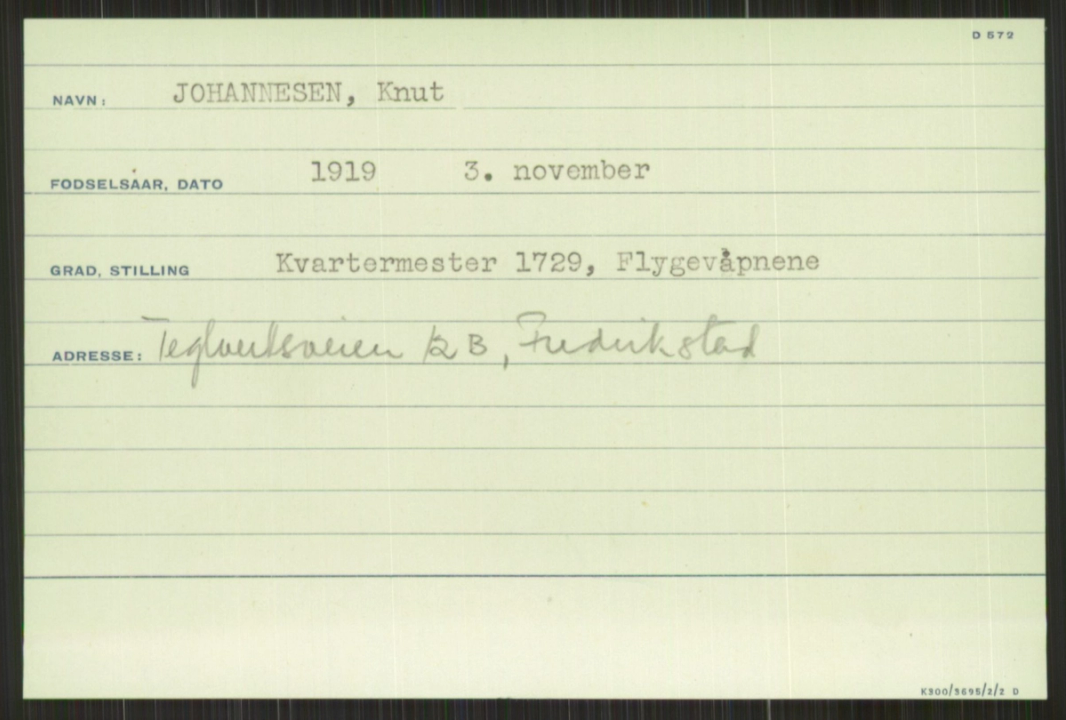 D 572
NAVN: JOHANNESEN, Knut
FODSELSÅAR, DATO 1919 3. november
GRAD, STILLING Kvartermester 1729, Flygevåpnene
ADRESSE: Teglverksveien 12 B, Fredrikstad
K300/3695/2/2 D